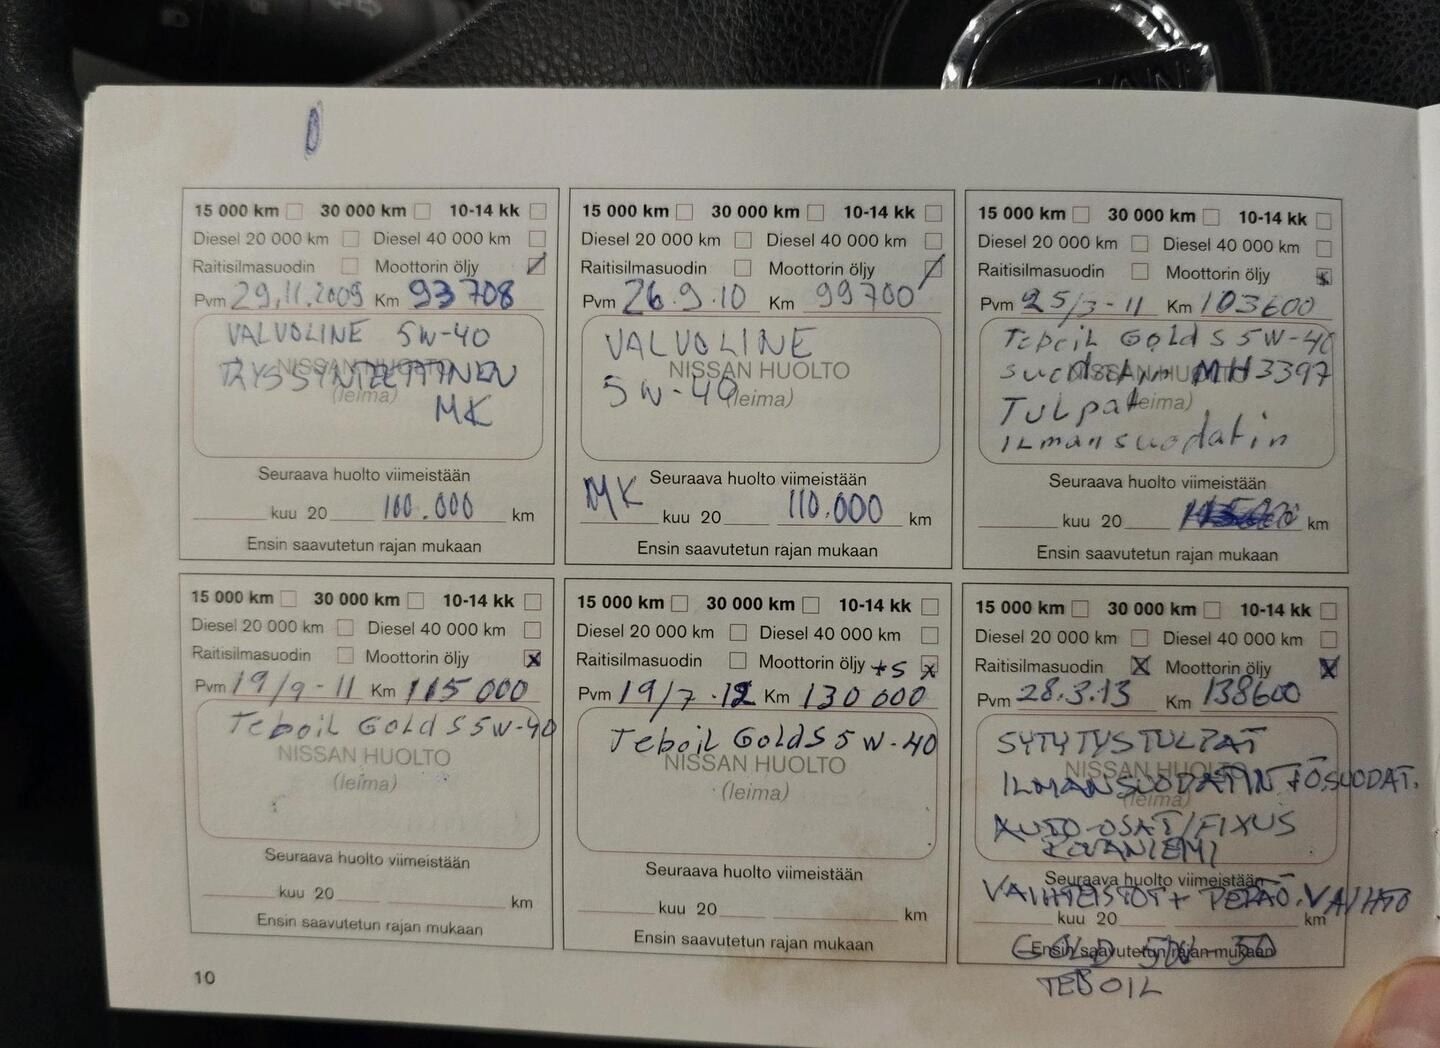 15 000 km 30 000 km 10-14 kk
Diesel 20 000 km Diesel 40 000 km
Raitisilmasuodin Moottorin öljy
Pvm 29.11.2009 Km 93708
VALVOLINE 5W-40
NISSAN HUOLTO
TÄYSSYNTEETTINEN
(leima)
MK
Seuraava huolto viimeistään
kuu 20 100.000 km
Ensin saavutetun rajan mukaan
15 000 km 30 000 km 10-14 kk
Diesel 20 000 km Diesel 40 000 km
Raitisilmasuodin Moottorin öljy
Pvm 26.9.10 Km 99700
VALVOLINE
NISSAN HUOLTO
5W-40
(leima)
Seuraava huolto viimeistään
MK
kuu 20 110.000 km
Ensin saavutetun rajan mukaan
15 000 km 30 000 km 10-14 kk
Diesel 20 000 km Diesel 40 000 km
Raitisilmasuodin Moottorin öljy
Pvm 25/3-11 Km 103600
Teboil Gold S 5W-40
NISSAN HUOLTO
suodatin MH3397
(leima)
Tulpat
ilmansuodatin
Seuraava huolto viimeistään
kuu 20 km
Ensin saavutetun rajan mukaan
15 000 km 30 000 km 10-14 kk
Diesel 20 000 km Diesel 40 000 km
Raitisilmasuodin Moottorin öljy
Pvm 19/9-11 Km 115 000
Teboil Gold S 5W-40
NISSAN HUOLTO
(leima)
Seuraava huolto viimeistään
kuu 20 km
Ensin saavutetun rajan mukaan
15 000 km 30 000 km 10-14 kk
Diesel 20 000 km Diesel 40 000 km
Raitisilmasuodin Moottorin öljy +S
Pvm 19/7.12 Km 130 000
Teboil Gold S 5W-40
NISSAN HUOLTO
(leima)
Seuraava huolto viimeistään
kuu 20 km
Ensin saavutetun rajan mukaan
15 000 km 30 000 km 10-14 kk
Diesel 20 000 km Diesel 40 000 km
Raitisilmasuodin Moottorin öljy
Pvm 28.3.13 Km 138600
SYTYTYSTULPAT
NISSAN HUOLTO
ILMANSUODATIN +Ö.SUODAT.
(leima)
AUTO-OSAT/FIXUS
ROVANIEMI
Seuraava huolto viimeistään
VAIHTEISTOT+ PERÄÖ.VAIHTO
kuu 20 km
Ensin saavutetun rajan mukaan
GOLD 5W-50
TEBOIL
10